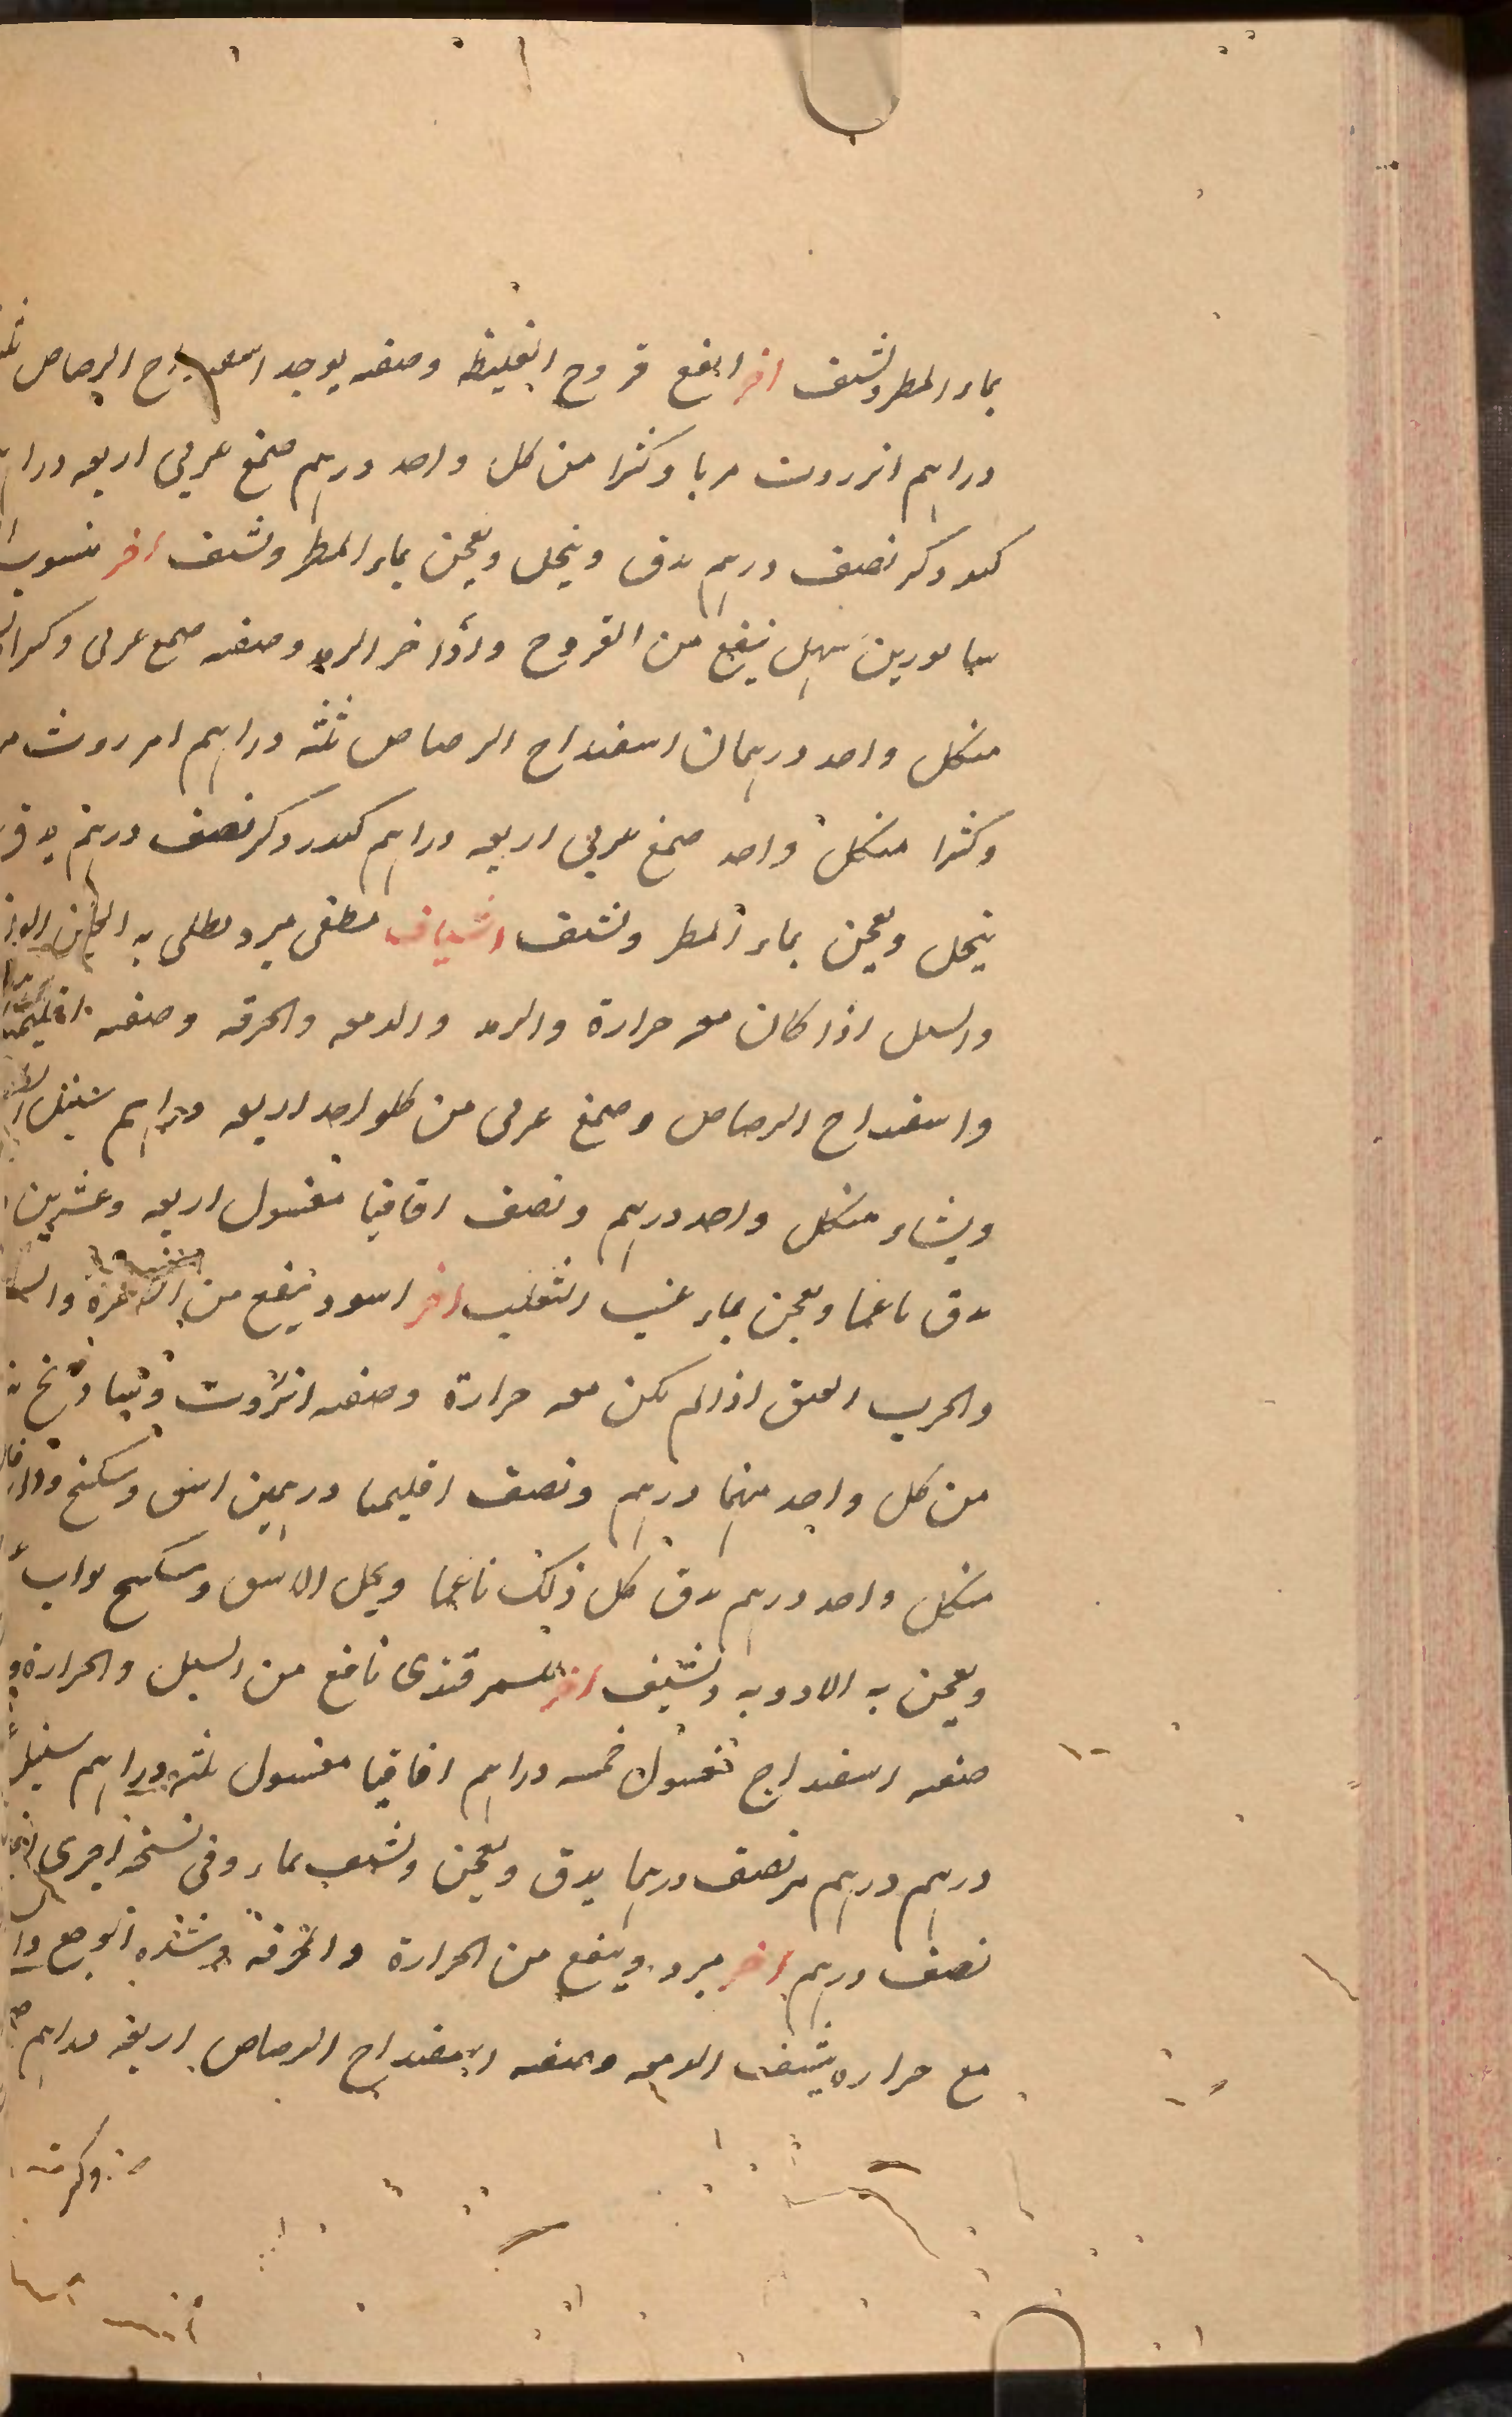 بماء المطر وتشيف اخر انفع قروح الغليظه وصفه يوجد اسفيداج الرصاص
دراهم انزروت مربا وكثرا من كل واحد درهم صمغ عربي اربعه دراهم
كندر ذكر نصف درهم يدق وينخل ويعجن بماء المطر وتشيف اخر منسوب
ينفع من القروح واواخر الرمد وصفه صمغ عربي
منكل واحد درهمان اسفيداج الرصاص ثلثه دراهم انزروت
وكثرا منكل واحد صمغ عربي اربعه دراهم كندر ذكر نصف درهم يدق
ينخل ويعجن بماء المطر وتشيف اشياف مطفى مبرد يطلى به
والسبل اذا كان معه حرارة والرمد والدمعه والحرقه وصفه اقليميا
واسفيداج الرصاص وصمغ عربي من كلواحد اربعه دراهم سنبل
منكل واحد درهم ونصف اقاقيا مغسول اربعه وعشرين
يدق ناعما ويعجن بماء عنب الثعلب اخر اسود ينفع من
والجرب العتيق اذا لم يكن معه حرارة وصفه انزروت
من كل واحد منهما درهم ونصف اقليميا درهمين اشق وسكبنج
منكل واحد درهم يدق كل ذلك ناعما ويحل الاشق وسكبنج
ويعجن به الادويه وتشيف اخر للسمرقندى نافع من السبل والحرارة
صفه اسفيداج مغسول خمسه دراهم اقاقيا مغسول ثلثه دراهم سنبل
درهم درهم مر نصف درهما يدق ويعجن وتشيف بماء وفى نسخة اخرى
نصف درهم اخر مبرد وينفع من الحرارة والحرقة وشده الوجع
مع حراره ينشف الدمعه وصفه اسفيداج الرصاص اربعه دراهم